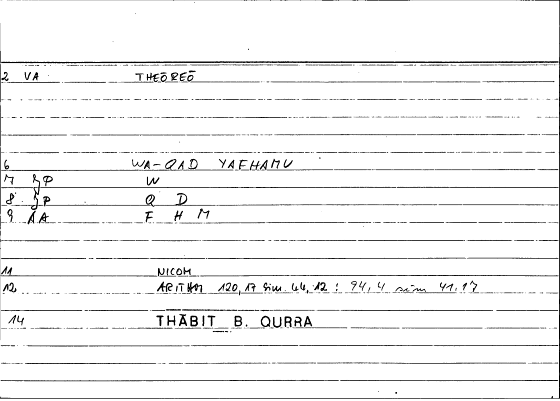 2 VA THEŌREŌ
6 WA-QAD YAFHAMU
7 ȜP W
8 ȜP Q D
9 AA F H M
11 NICOM
12 ARITHM 120,17 sim 44,12 : 94,4 sim 41,17
14 THĀBIT B. QURRA